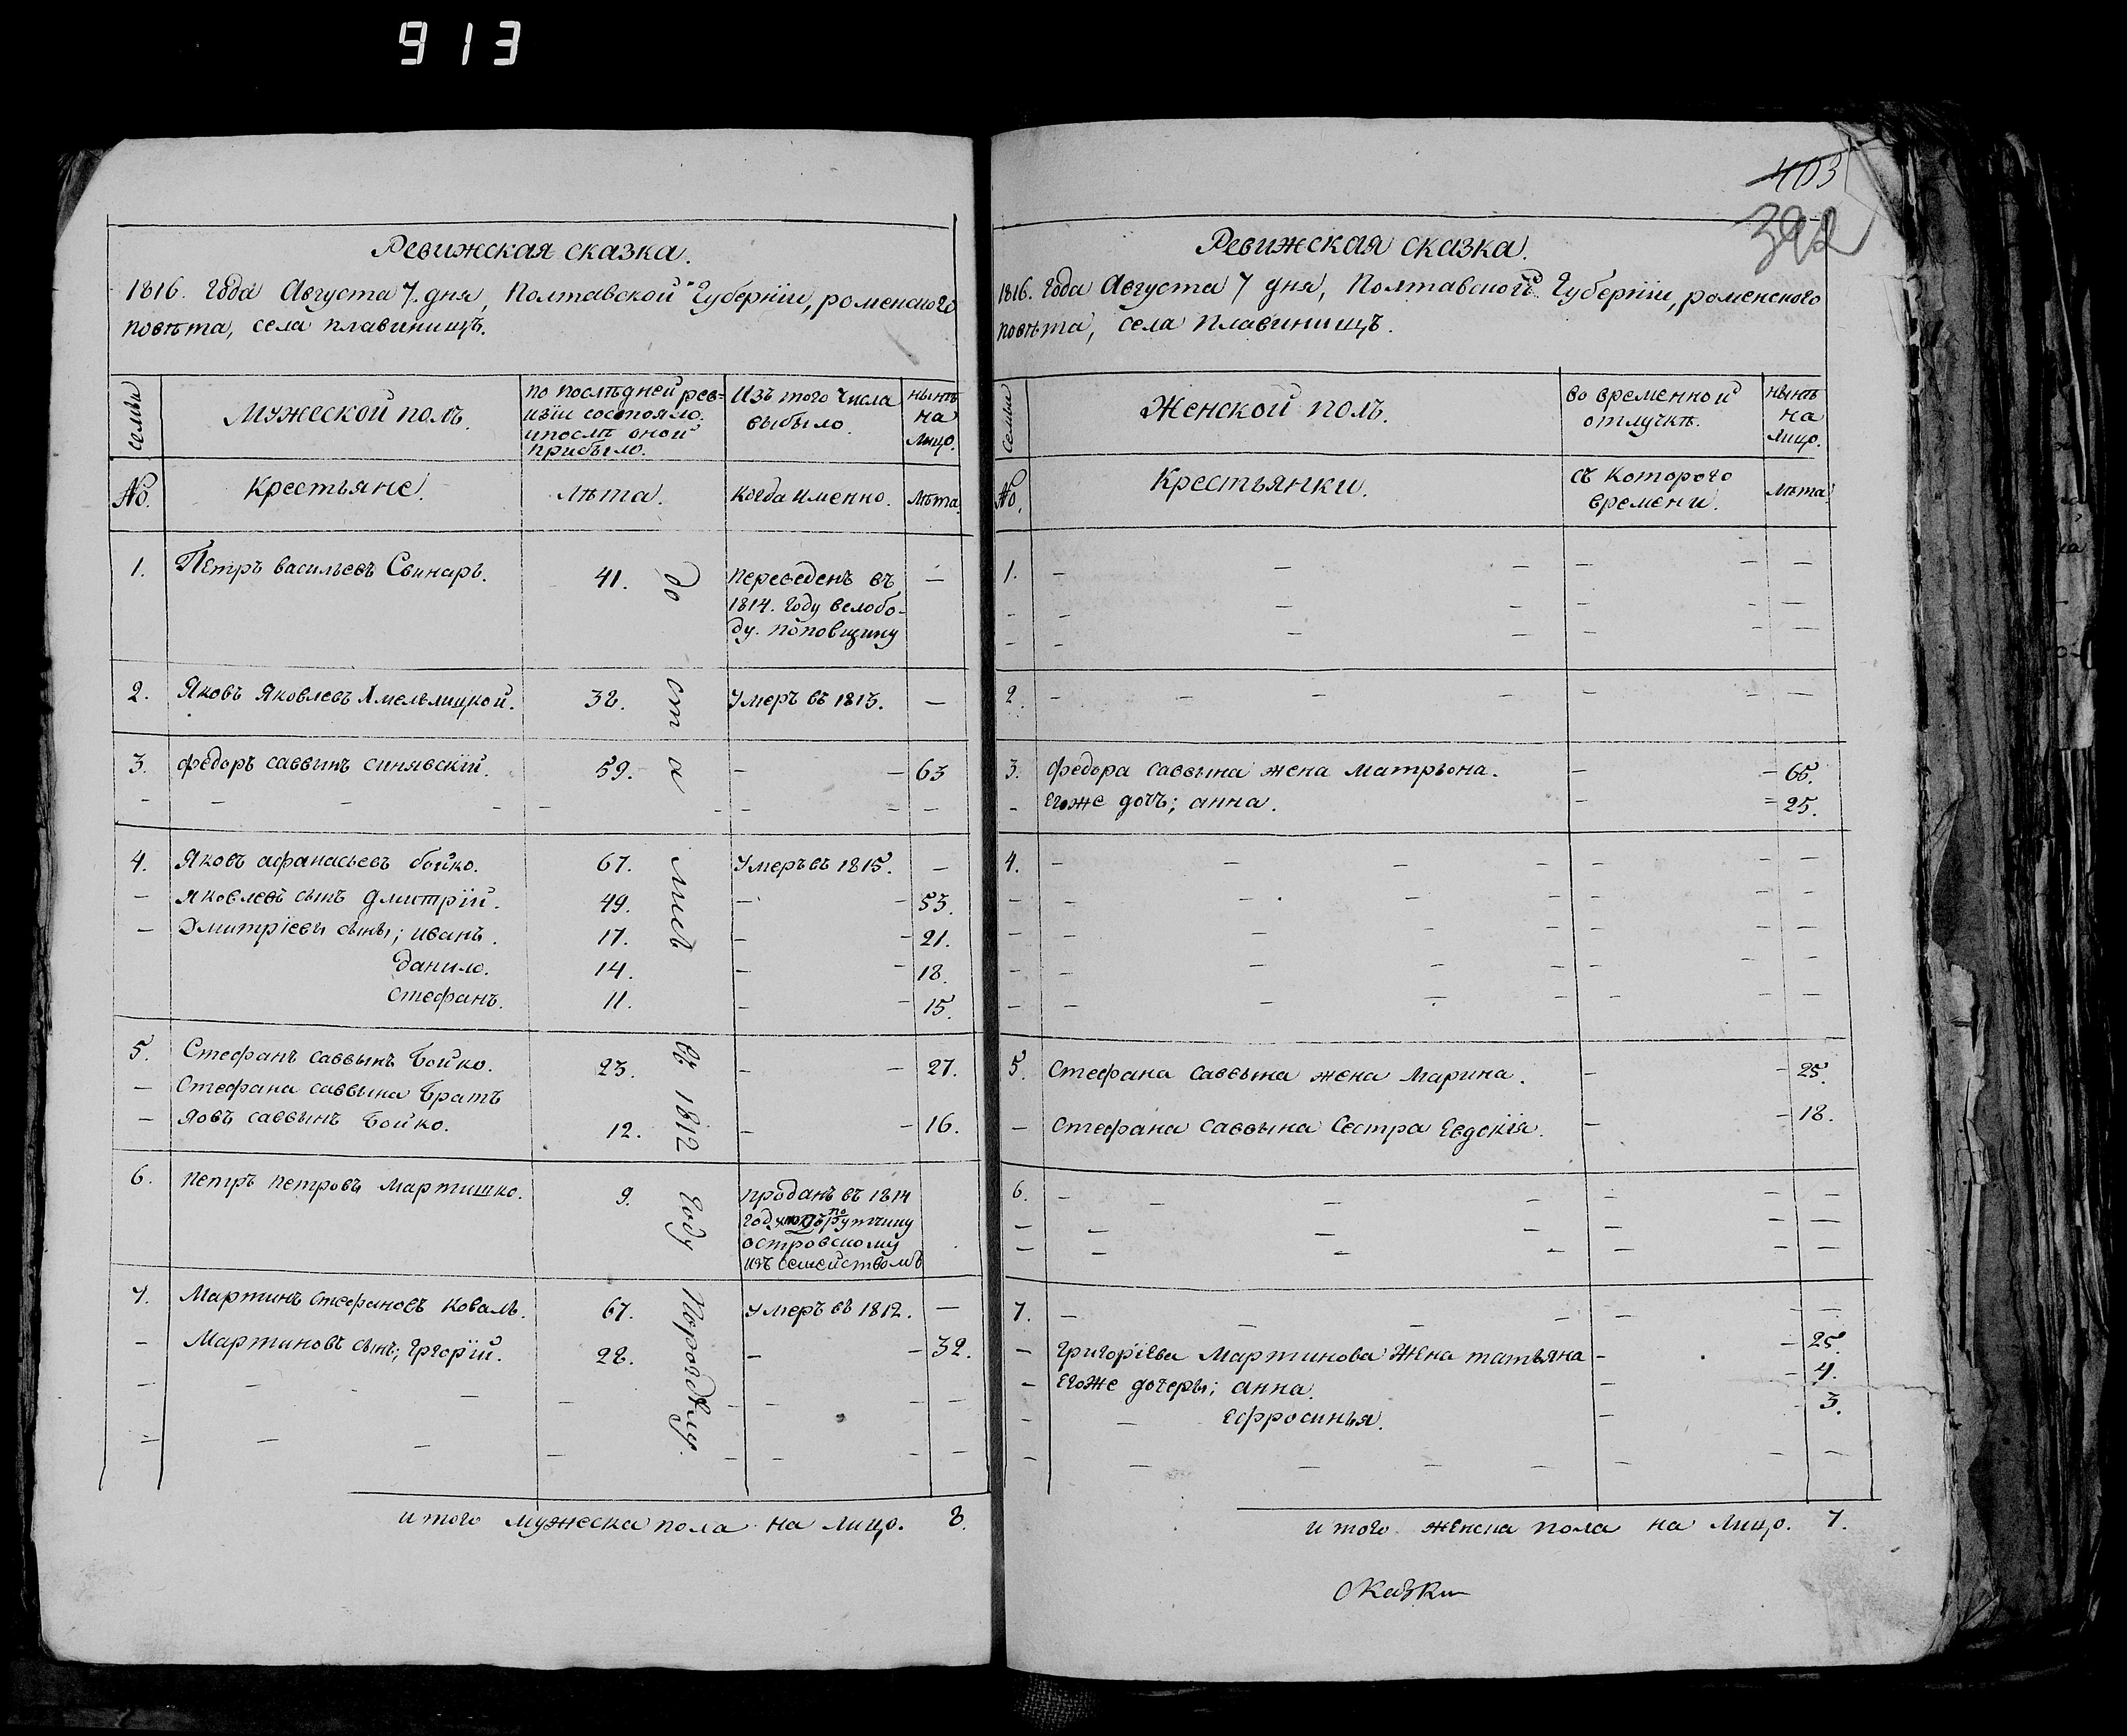 913
Ревижская сказка.
1816. Года Августа 7. дня, Полтавской Губернїи, роменского
повѣта, села плавинищъ.
семьи
Мужеской полъ.
по послѣдней рев=
изїи состояло.
ипослѣ оной
прибыло.
Изъ того числа
выбыло.
нынѣ
на
лицо.
No.
Крестьяне.
лѣта.
когда именно.
лѣта.
1. Петръ васильевъ Свинаръ. 41. переведенъ въ —
1814. году вслобо-
ду. поповщину
2. Яковъ Яковлевъ Хмельницкой. 32. Умеръ въ 1813. —
3. федоръ саввинъ синявскїй. 59. — — 63
4. Яковъ афанасьевъ бойко. 67. Умеръ въ 1815. —
— Яковлевъ сынъ дмитрїй. 49. — — 53.
— Дмитрїевы сыны; иванъ. 17. — — 21.
данило. 14. — — 18.
стефанъ. 11. — — 15.
5. Стефанъ саввинъ Бойко. 23. — — 27.
— Стефана саввина Братъ
— яовъ саввинъ Бойко. 12. — — 16.
6. петръ петровъ мартишко. 9. проданъ въ 1814
году по
островскому
изъ семействомъ
7. Мартинъ стефановъ коваль. 67. умеръ въ 1812. —
— Мартиновъ сынъ; григорїй. 28. — — 32.
до ста лись въ 1812 году По роздѣлу.
итого мужеска пола на лицо. 8.
403
392
Ревижская сказка.
1816. Года Августа 7 дня, Полтавской Губернїи, роменского
повѣта, села Плавинищъ.
семьи
Женской полъ.
во временной
отлучкѣ.
нынѣ
на
лицо.
No.
Крестьянки.
съ которого
времени.
лѣта
1. — — — — — —
2. — — — — — —
3. федора саввина жена матрьона. — — 65.
— Егоже дочъ; анна. — — 25.
4. — — — — — —
5. Стефана саввина жена Марина. — — 25.
— Стефана саввина Сестра Евдокїя. — — 18.
6. — — — — — —
7. — — — — — —
— григорїева Мартинова жена татьяна — — 25.
— Егоже дочеры; анна. — — 4.
— — Ефросинья. — — 3.
итого женска пола на лицо. 7.
сказки